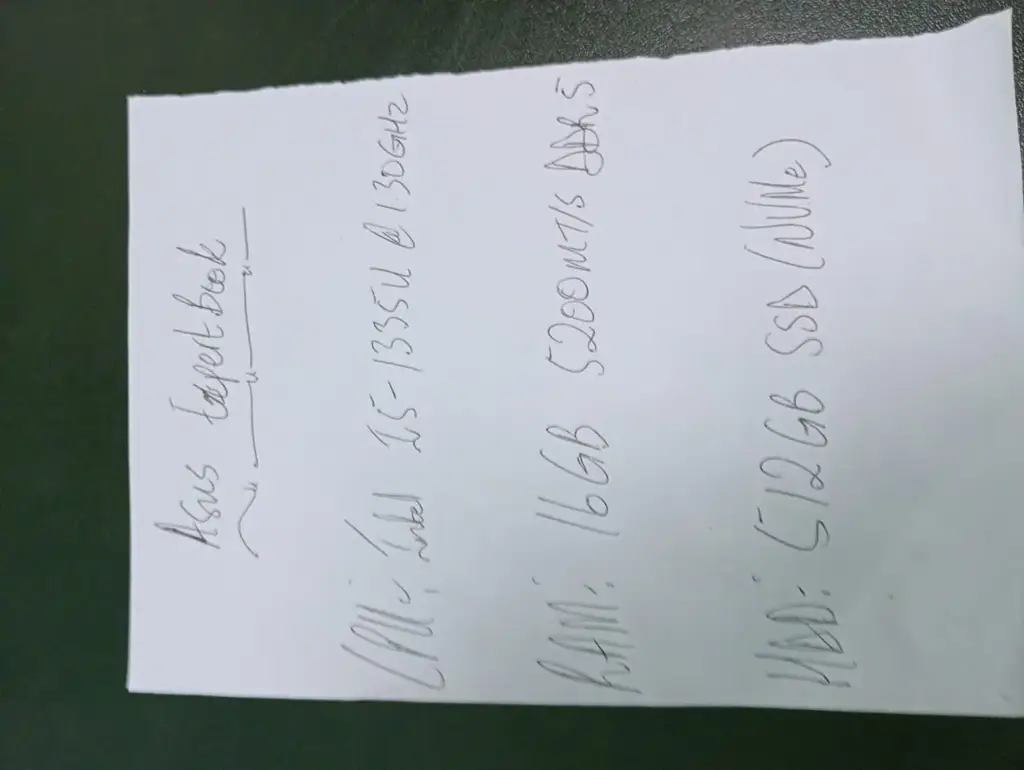 Asus ExpertBook
CPU: Intel I5-1335U @ 1.30GHz
RAM: 16GB 5200MT/S DDR5
HDD: 512GB SSD (NVMe)